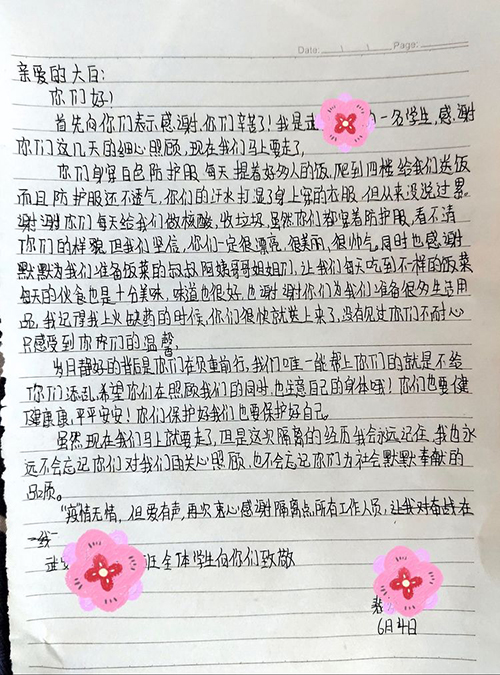 Date: Page:
亲爱的大白:
你们好!
首先向你们表示感谢,你们辛苦了!我是 一名学生,感谢
你们这几天的细心照顾,现在我们马上要走了,
你们身穿白色防护服,每天提着好多人的饭,爬到四楼给我们送饭
而且防护服还不透气,你们的汗水打湿了身上穿的衣服,但从来没说过累.
谢谢你们每天给我们做核酸,收垃圾,虽然你们都穿着防护服,看不清
你们的样貌,但我们坚信,你们一定很漂亮,很美丽,很帅气,同时也感谢
默默为我们准备饭菜的叔叔阿姨哥哥姐姐们,让我们每天吃到不一样的饭菜
每天的伙食也是十分美味,味道也很好,也谢谢你们为我们准备很多生活用
品,我记得我上火缺药的时候,你们很快就送上来了,没有见过你们不耐心
只感受到你们的温馨
岁月静好的背后是你们在负重前行,我们唯一能帮上你们的就是不给
你们添乱,希望你们在照顾我们的同时也注意自己的身体哦!你们也要健
健康康,平平安安!你们保护好我们也要保护好自己.
虽然现在我们马上就要走了,但是这次隔离的经历我会永远记住,我也永
远不会忘记你们对我们的关心照顾,也不会忘记你们为社会默默奉献的
品质。
"疫情无情,但爱有声,再次衷心感谢隔离点所有工作人员,让我对奋战在
一线"
班全体学生向你们致敬
6月4日